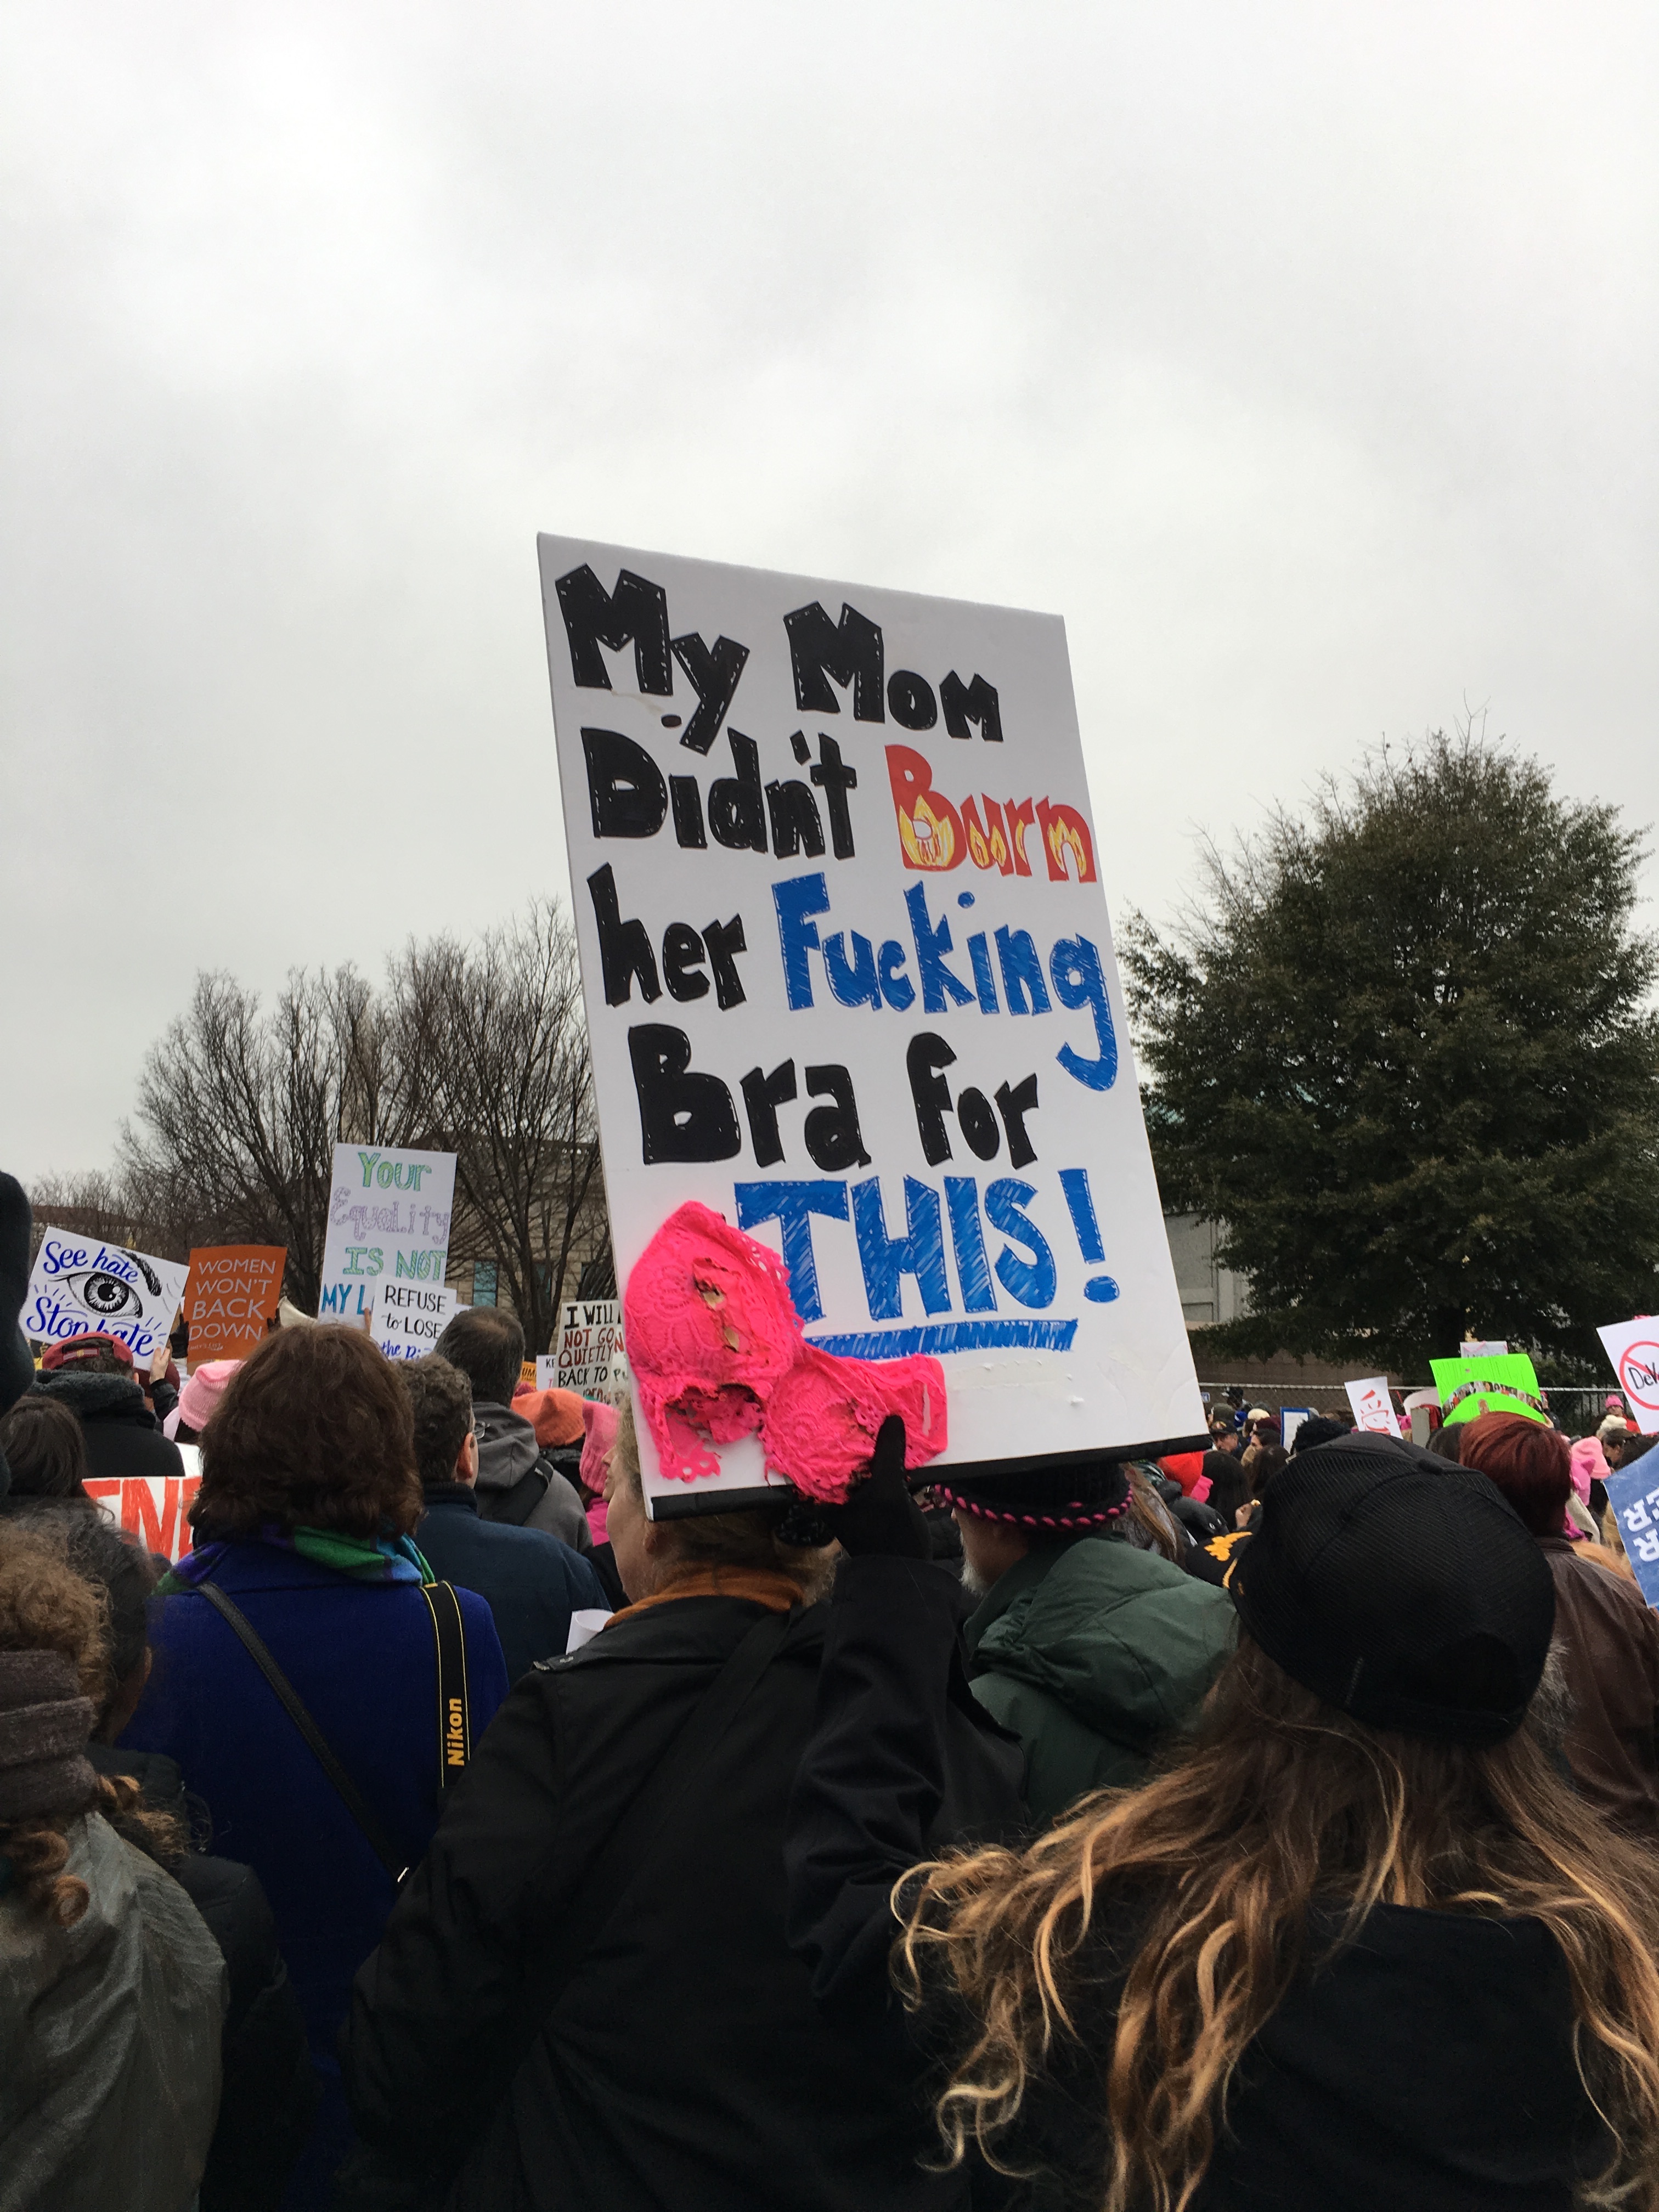 My Mom
Didn't Burn
her Fucking
Bra for
THIS!
See hate
Stop hate
WOMEN
WON'T
BACK
DOWN
Your
Equality
IS NOT
MY L
REFUSE
to LOSE
the Ri
I WILL
NOT GO
QUIETLY
BACK TO
Nikon